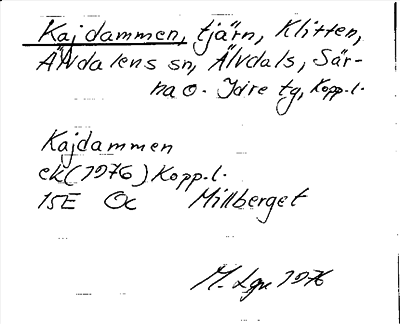 Kajdammen, tjärn, Klitten,
Älvdalens sn, Älvdals, Sär-
na o. Idre tg, Kopp.l.
Kajdammen
ek (1976) Kopp.l.
15E Oc Millberget
M. Lgn 1976